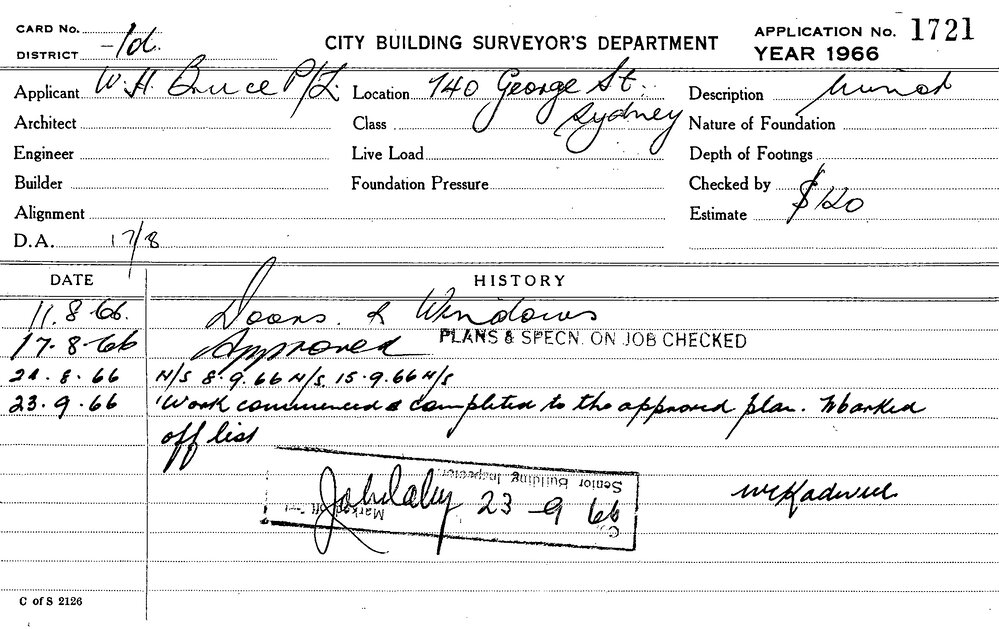 CARD No.
DISTRICT -/d.
CITY BUILDING SURVEYOR'S DEPARTMENT
APPLICATION No. 1721
YEAR 1966
Applicant W. H. Bruce P/L. Location 740 George St. Sydney Description
Architect Class Nature of Foundation
Engineer Live Load Depth of Footings
Builder Foundation Pressure Checked by
Alignment Estimate $120
D.A. 17/8
DATE HISTORY
11.8.66. Doors & Windows
17.8.66 Approved PLANS & SPECN. ON JOB CHECKED
24.8.66 N/S 8.9.66 N/S 15.9.66 N/S
23.9.66 Work commenced & completed to the approved plan. Marked
off list
Senior Building Inspector
23-9 66
C of S 2126